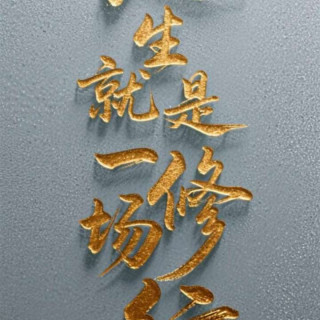 生
就是
一
场修